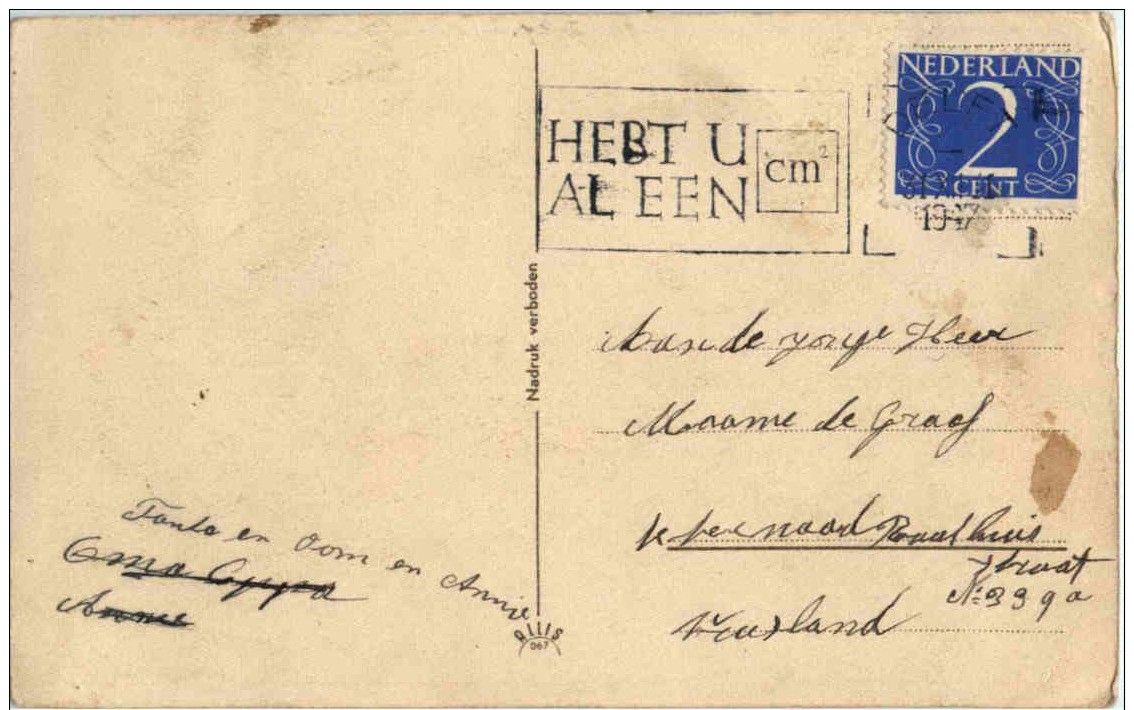 NEDERLAND
2
CENT
1947
HEBT U
AL EEN
cm²
Nadruk verboden
Aan de jonge Heer
de Graaf
Raadhuis
straat
No 399a
Zeeland
Tante en Oom en Annie
Oma Oppa
Annie
QILIS
067